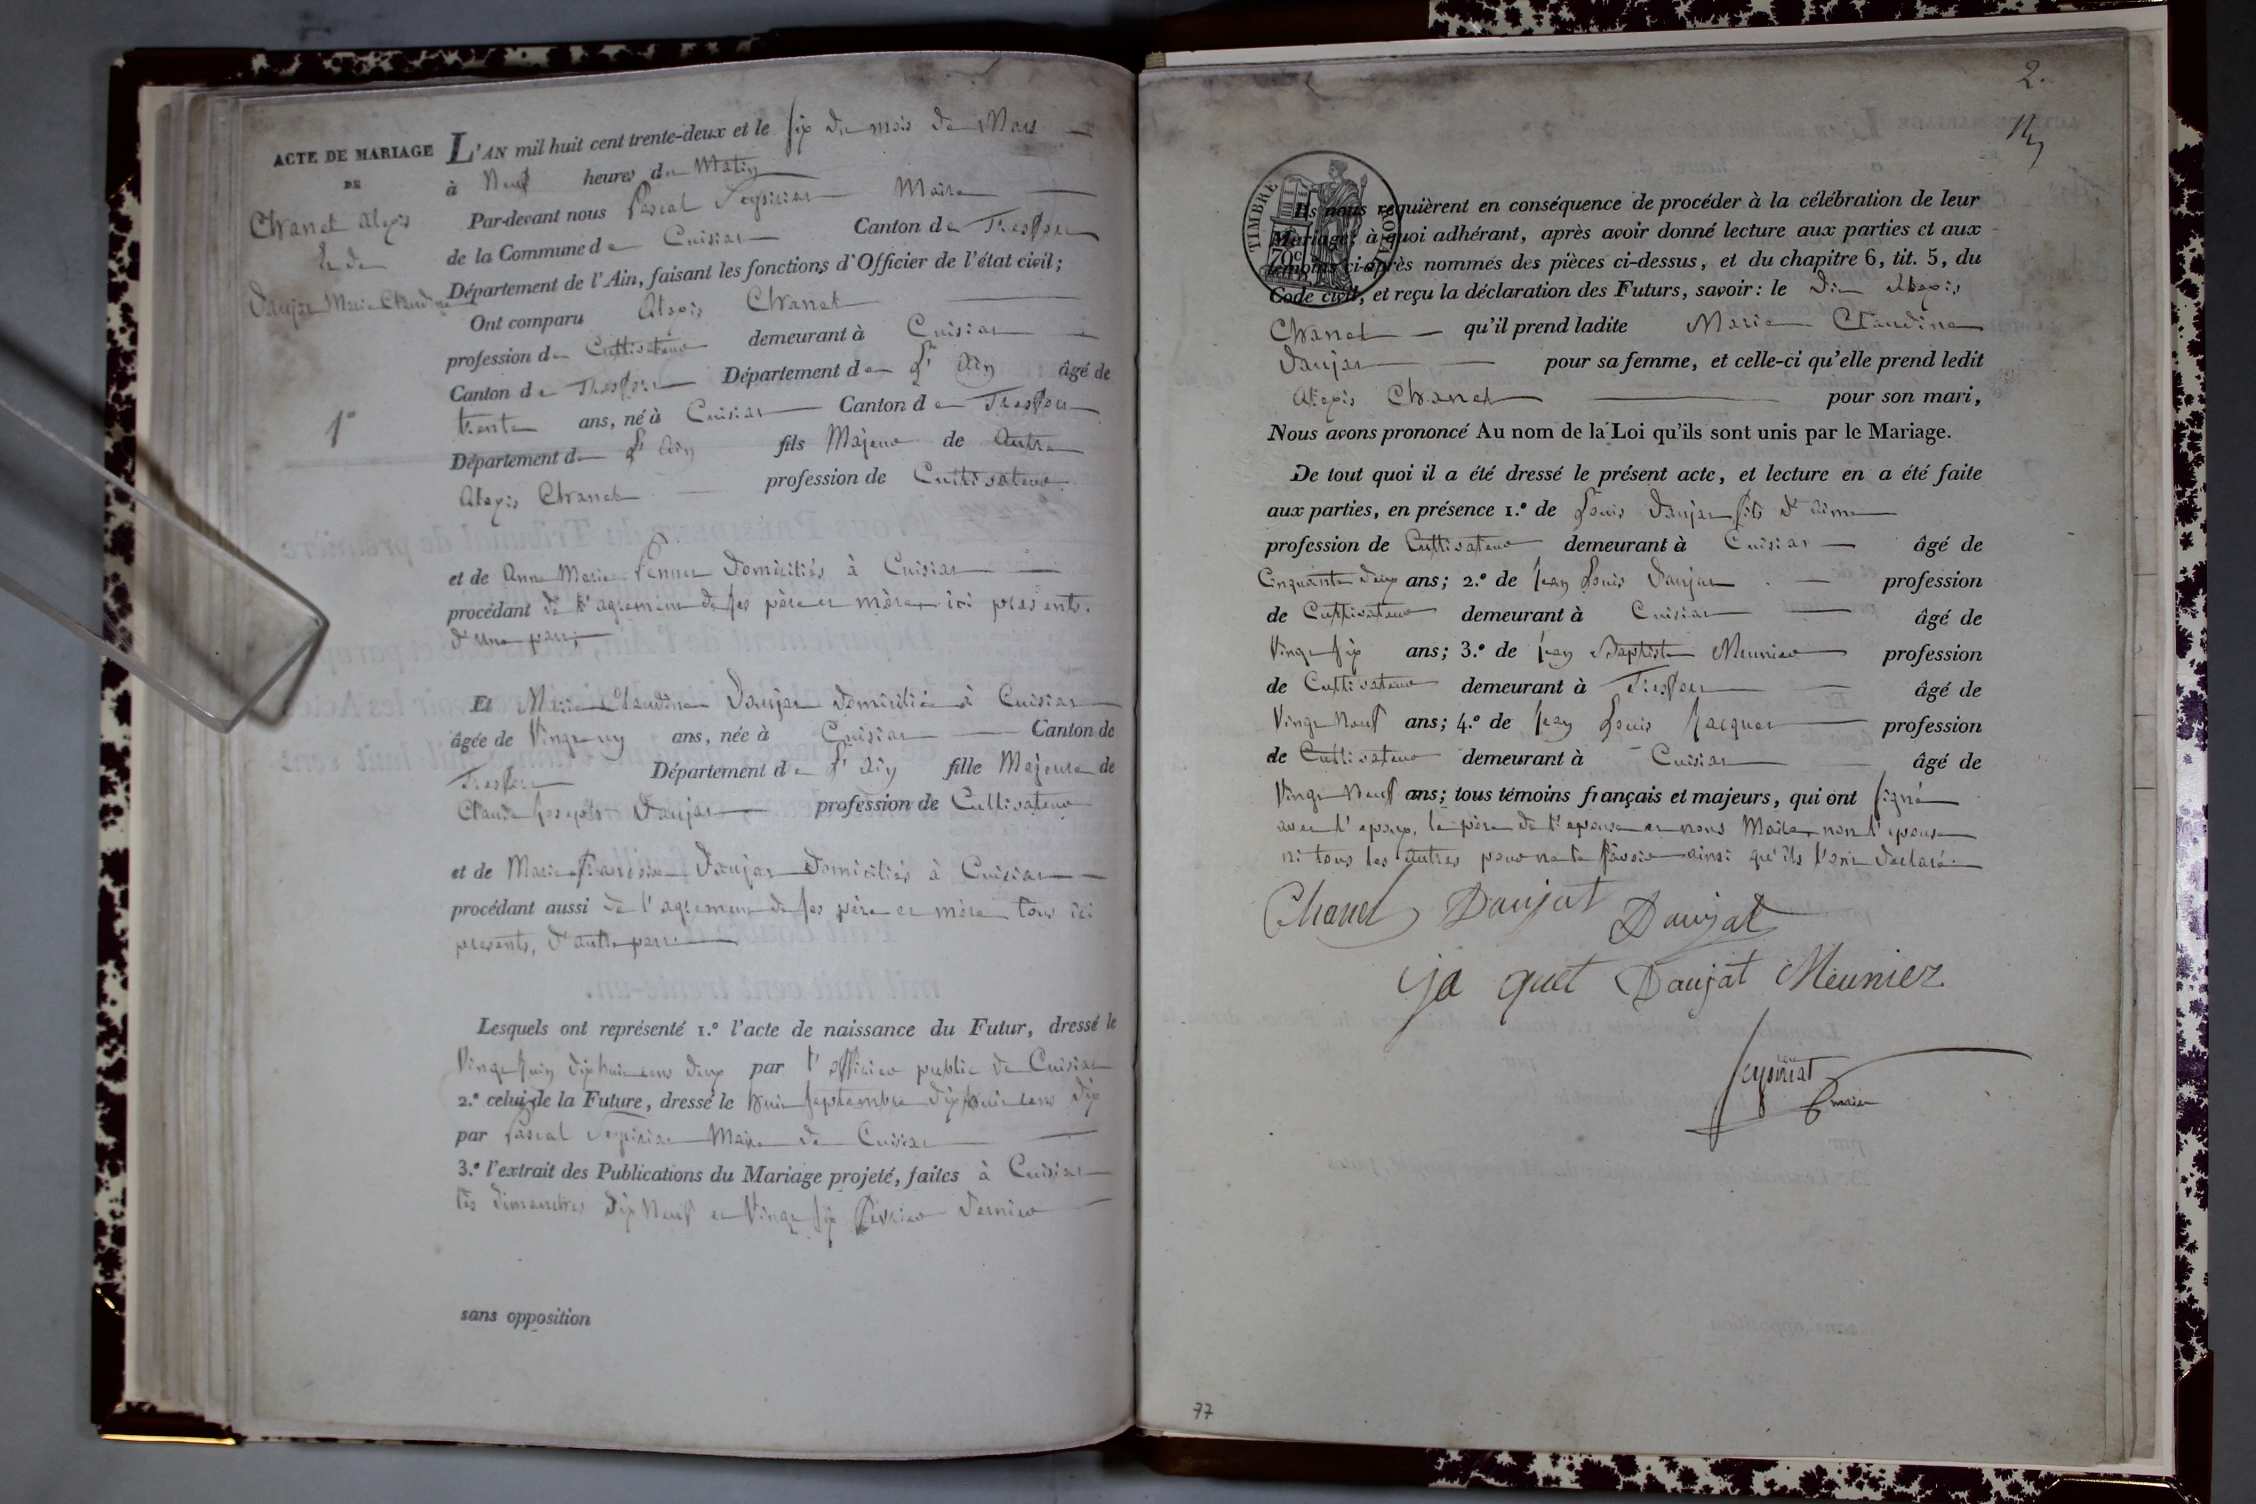 ACTE DE MARIAGE
DE
Chanel Alexis
Et de
Daujat Marie Claudine
1°
L'AN mil huit cent trente-deux et le six du mois de Mars
à Neuf heures du Matin
Par-devant nous Pascal Seyssiat Maire
de la Commune de Cuisiat Canton de Treffort
Département de l'Ain, faisant les fonctions d'Officier de l'état civil;
Ont comparu Alexis Chanel
profession de Cultivateur demeurant à Cuisiat
Canton de Treffort Département de L'Ain âgé de
trente ans, né à Cuisiat Canton de Treffort
Département de L'Ain fils Majeur de Autre
Alexis Chanel profession de Cultivateur
et de Anne Marie domiciliés à Cuisiat
procédant de l'agrement de ses père et mère ici présents.
d'une part,
Et Marie Claudine Daujat domiciliée à Cuisiat
âgée de Vingt un ans, née à Cuisiat Canton de
Treffort Département de L'Ain fille Majeure de
Claude Joseph Daujat profession de Cultivateur
et de Marie Daujat domiciliés à Cuisiat
procédant aussi de l'agrement de ses père et mère tous ici
présents, d'autre part
Lesquels ont représenté 1.° l'acte de naissance du Futur, dressé le
Vingt Juin dix huit cent deux par l'officier public de Cuisiat
2.° celui de la Future, dressé le huit Septembre dix huit cent dix
par Pascal Seyssiat Maire de Cuisiat
3.° l'extrait des Publications du Mariage projeté, faites à Cuisiat
les dimanches dix Neuf et Vingt six Février dernier
sans opposition
2.
TIMBRE ROYAL
70c
Ils nous requièrent en conséquence de procéder à la célébration de leur
Mariage; à quoi adhérant, après avoir donné lecture aux parties et aux
témoins ci-après nommés des pièces ci-dessus, et du chapitre 6, tit. 5, du
Code civil, et reçu la déclaration des Futurs, savoir: le dit Alexis
Chanel qu'il prend ladite Marie Claudine
Daujat pour sa femme, et celle-ci qu'elle prend ledit
Alexis Chanel pour son mari,
Nous avons prononcé Au nom de la Loi qu'ils sont unis par le Mariage.
De tout quoi il a été dressé le présent acte, et lecture en a été faite
aux parties, en présence 1.° de Louis Daujat fils d'Aimé
profession de Cultivateur demeurant à Cuisiat âgé de
Cinquante deux ans; 2.° de Jean Louis Daujat profession
de Cultivateur demeurant à Cuisiat âgé de
Vingt six ans; 3.° de Jean Baptiste Meunier profession
de Cultivateur demeurant à Treffort âgé de
Vingt Neuf ans; 4.° de Jean Louis Jacquet profession
de Cultivateur demeurant à Cuisiat âgé de
Vingt Neuf ans; tous témoins français et majeurs, qui ont signé
avec l'epoux, le père de l'epouse et nous Maire, non l'epouse
ni tous les autres pour ne le savoir ainsi qu'ils l'ont déclaré
Chanel Daujat Daujat
ja quet Daujat Meunier
maire
77